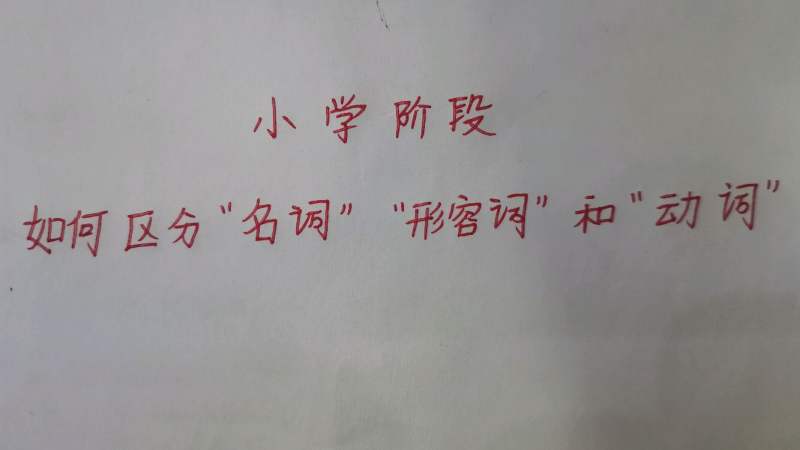 小学阶段
如何区分“名词”“形容词”和“动词”